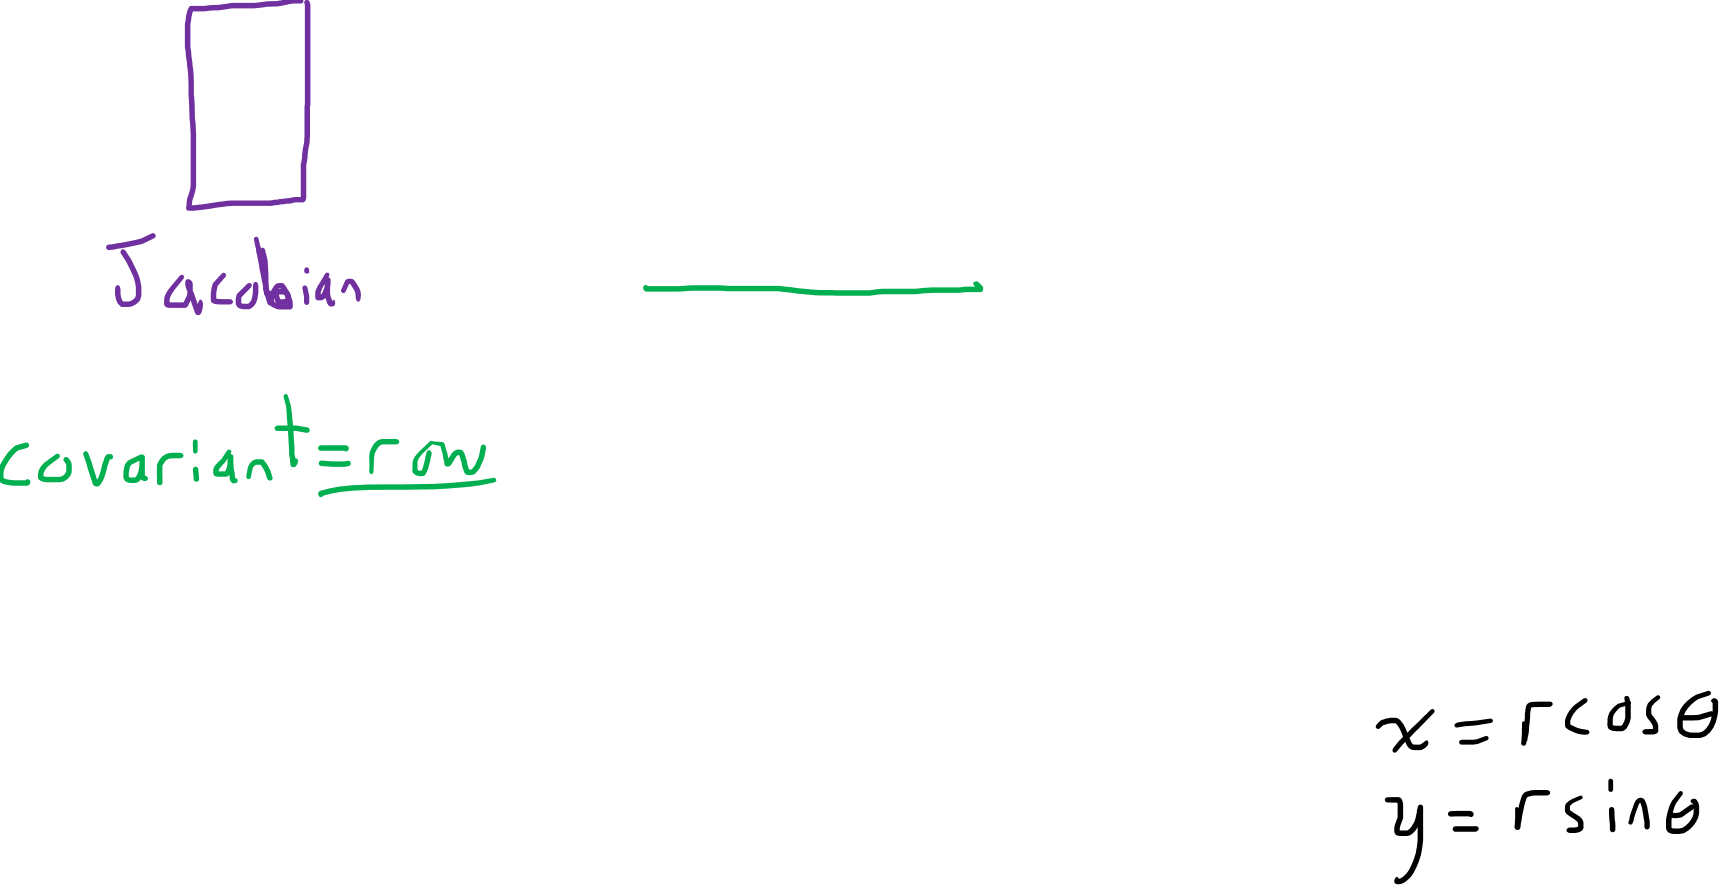 Jacobian
covariant = row
x = rcosθ
y = rsinθ